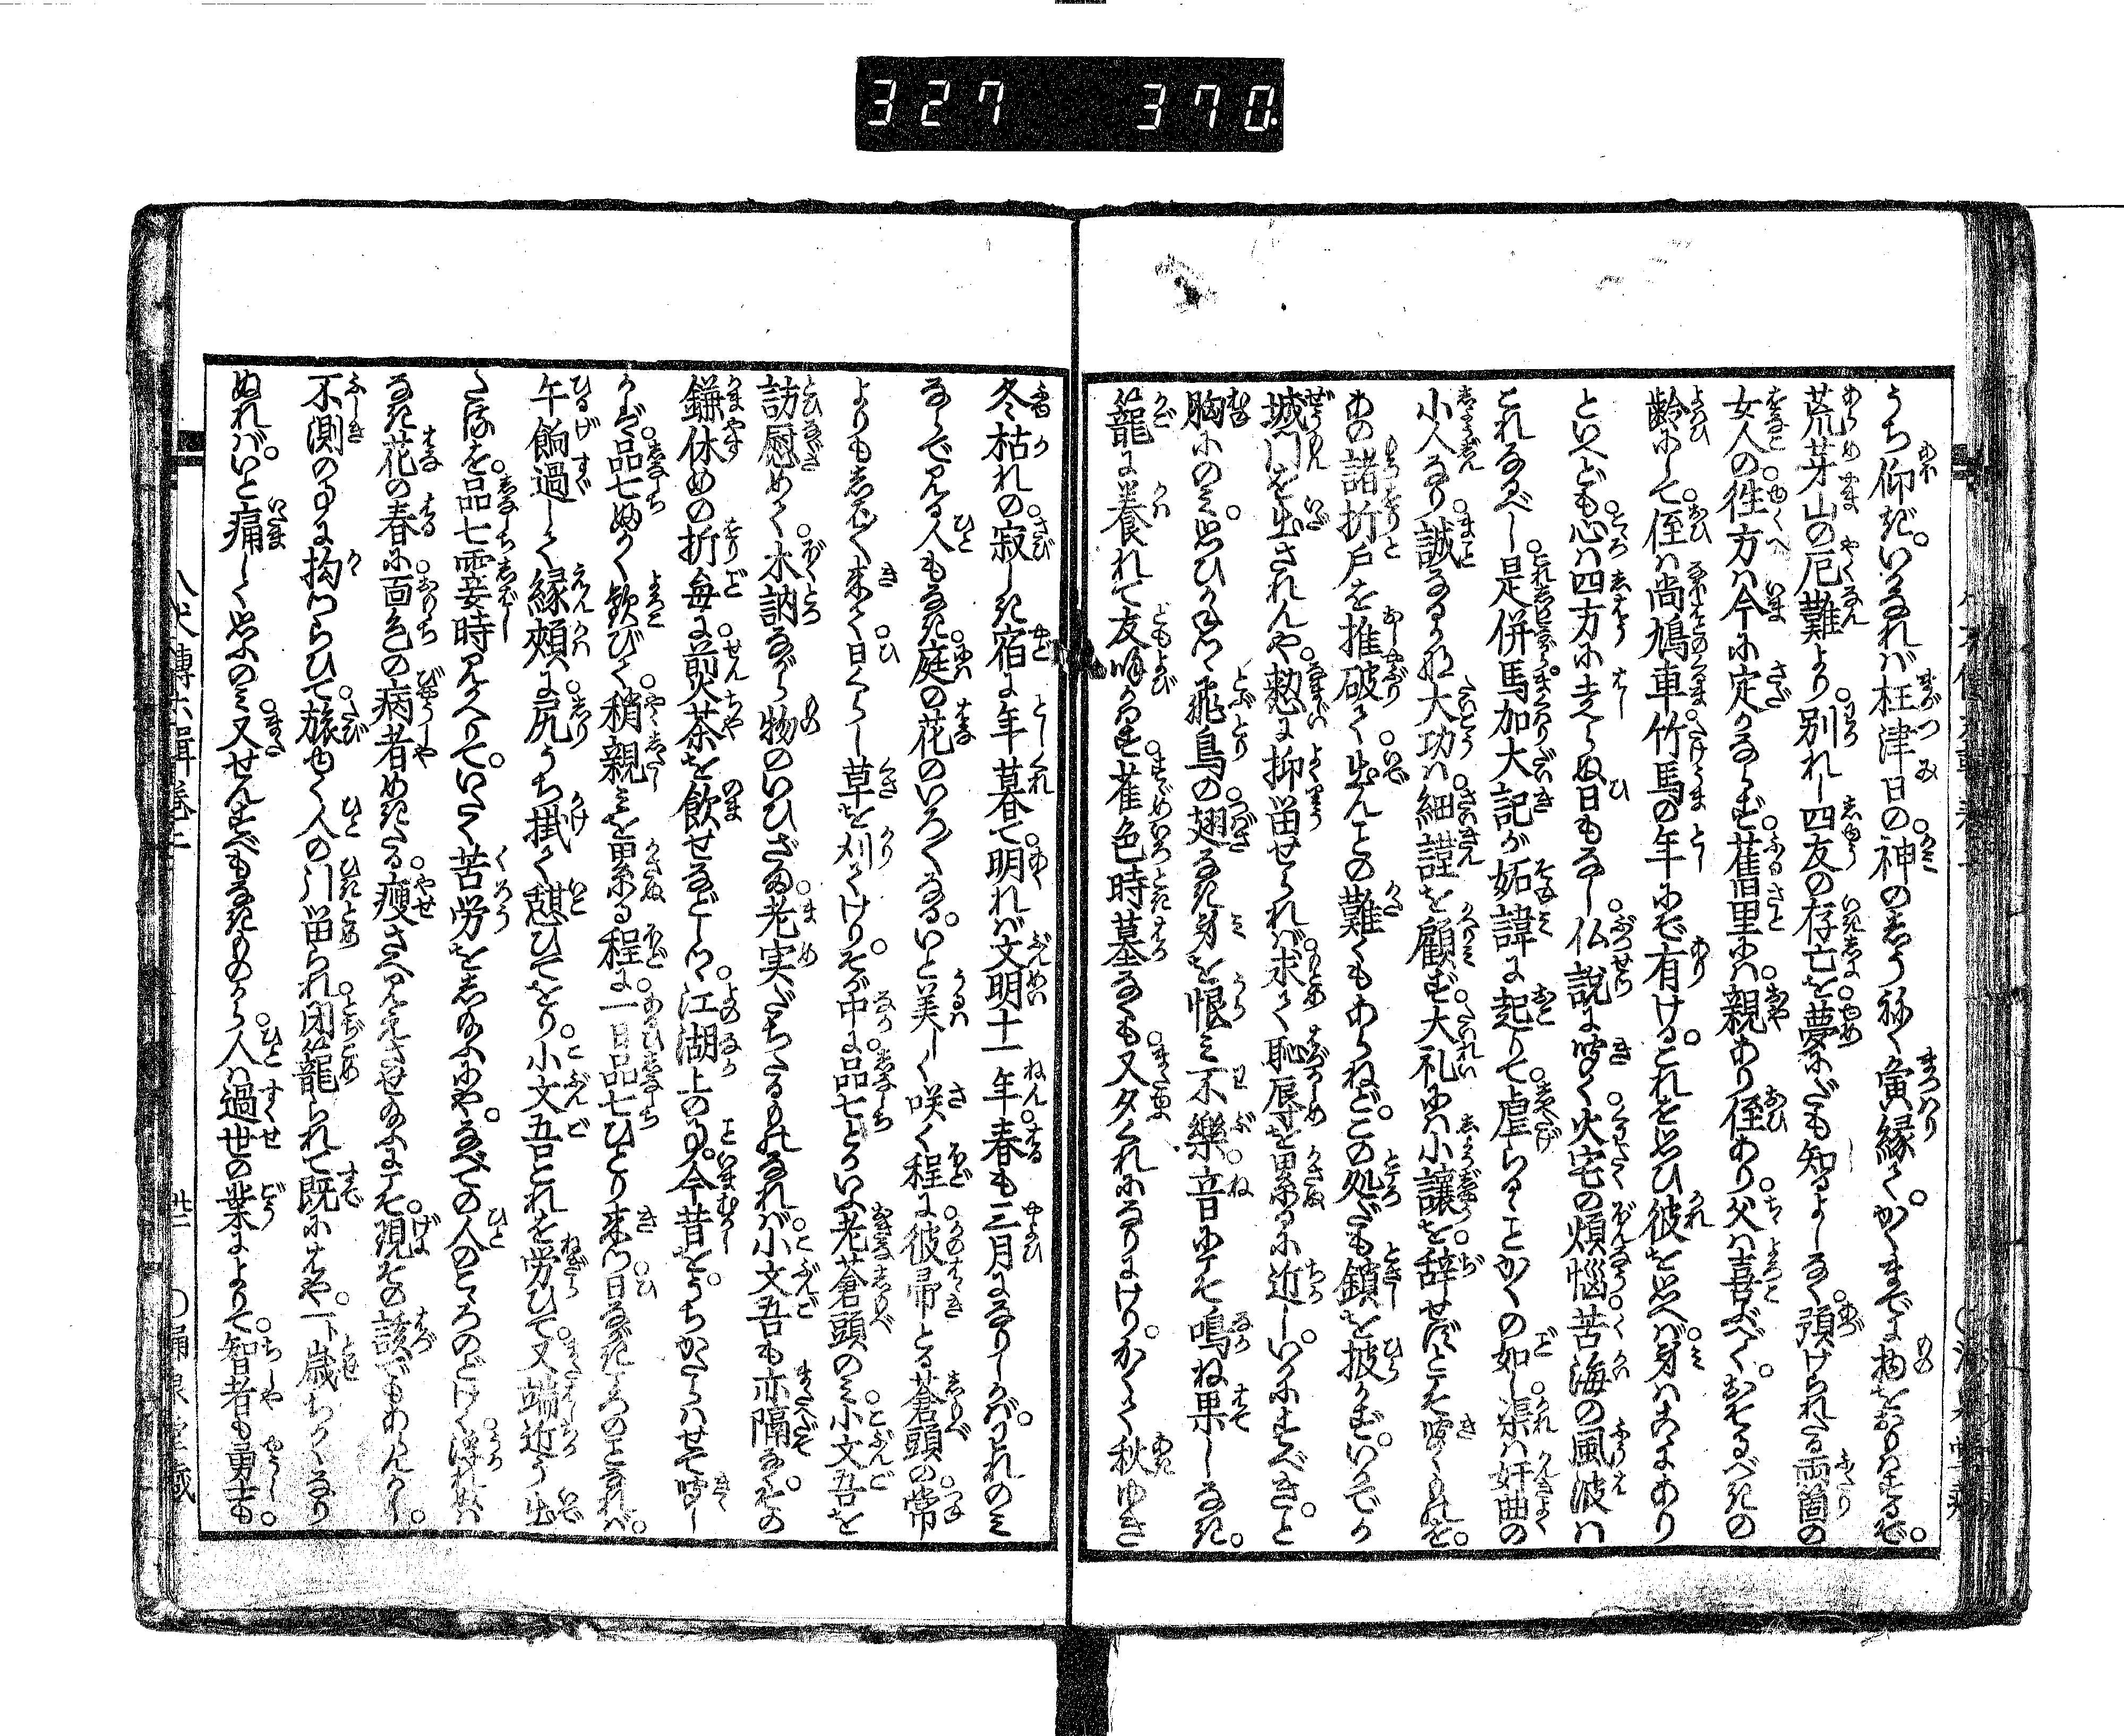 327 370.
うち仰ぎ。いかなれば枉津日の神のしうねく寅縁て。かくまでに物をおもはするぞ。
荒芽山の厄難より。別れし四友の存亡を。夢にだも知るよしなく。預けられたる両箇の
女人の。往方は今に定かならず。旧里には。親あり侄あり。父は喜ぶべく。おさるべきの
齢にして。侄は尚鳩車竹馬の年にぞ有ける。これを思ひ彼を思へば。身はこゝにあり
といへども。心は四方に走らぬ日もなし。仏説に聞く。火宅の煩悩。苦海の風波は
これなるべし。是併馬加大記が妬諱に起りて。虐らるゝことかくの如し。渠は奸曲の
小人なり。誠なるかな大功は。細謹を顧ず。大礼には小譲を。辞せずとこそ聞くものを。
あの諸折戸を推破て。出んことの難くもあらねど。この処だも鎖を披かず。いかでか
城門を出されんや。憖に抑留せられば。求て恥辱を累るに近し。いかにすべき。と
胸にのみ。思ひかねつゝ飛鳥の。翅なき身を恨み不楽。音にこそ鳴ね果しなき。
籠に養れて友呼かはす。雀色時墓なくも。又夕くれになりにけり。かくて秋ゆき
冬枯れの。寂しき宿に年暮て。明れば文明十一年。春も三月になりしかば。われのみ
ならで見る人もなき。庭の花のいろ〳〵なる。いと美しく咲く程に。彼帚とる蒼頭の。常
よりもしば〳〵来て。日くらし草を刈てけり。そが中に。品七とかいふ老蒼頭のみ。小文吾を
訪慰めて。木訥ながら物のいひざま。老実だちたるものなれば。小文吾も亦隔なく。その
鎌休めの折毎に。煎茶を飲せなどしつゝ。江湖上の事。今昔を。うちかたらはせて聞し
かば。品七ぬかく歓びて。稍親みを累る程に。一日品七ひとり来つ。日ながきころのことなれば。
午餉過して縁頬に。尻うち掛て憩ひてをり。小文吾これを労ひて。又端近う出
たるを。品七霎時見かへりて。いたく苦労をし給ふにや。なべての人のこゝろのどけく。浮れぬは
なき花の春に。面色の病者めきたる。痩さへ見えさせ給ふにこそ。現その該でもあらんかし。
不測の事に拘つらひて。旅ゆく人の引留られ。閉籠られて既にはや。一ト歳ちかくなり
ぬれば。いと痛しく思ふのみ。又せんすべもなきものから。人は過世の業によりて。智者も勇士も
八犬傳六輯巻二